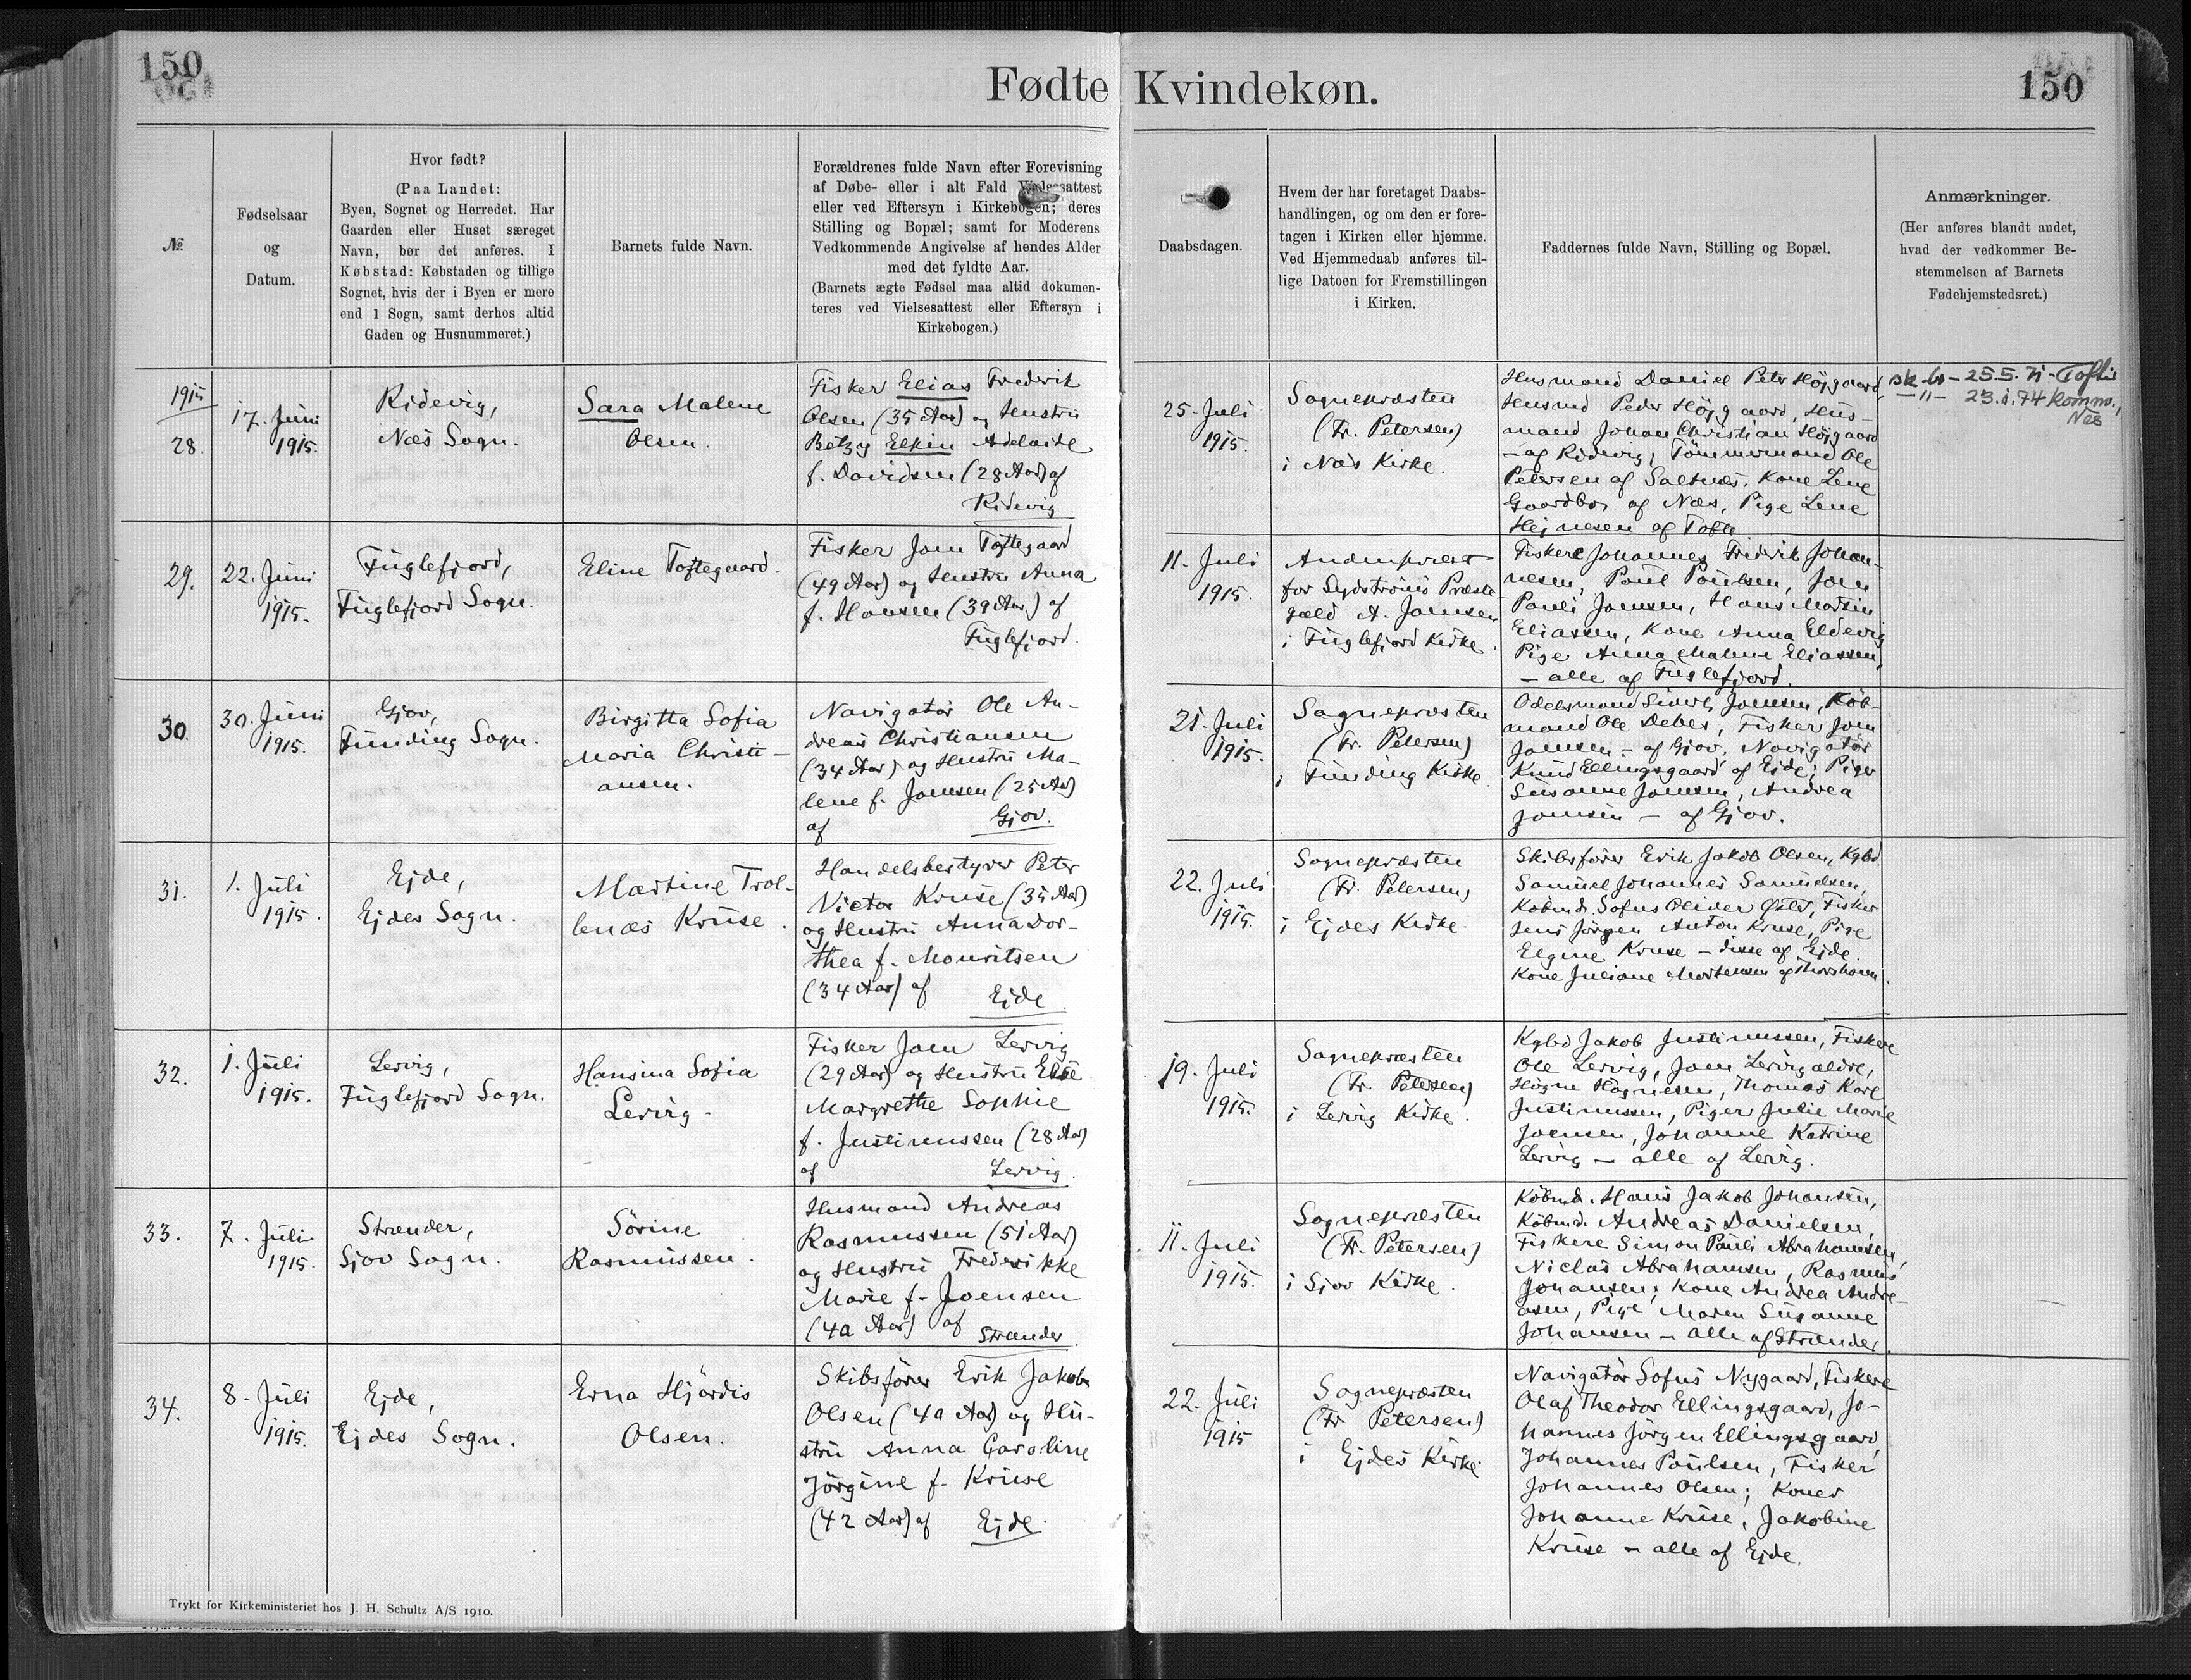 150
Fødte
Kvindekøn.
150
№
Fødselsaar
og
Datum.
Hvor født?
(Paa Landet:
Byen, Sognet og Herredet. Har
Gaarden eller Huset særeget
Navn, bør det anføres. I
Købstad: Købstaden og tillige
Sognet, hvis der i Byen er mere
end 1 Sogn, samt derhos altid
Gaden og Husnummeret.)
Barnets fulde Navn.
Forældrenes fulde Navn efter Forevisning
af Døbe- eller i alt Fald Vielsesattest
eller ved Eftersyn i Kirkebogen; deres
Stilling og Bopæl; samt for Moderens
Vedkommende Angivelse af hendes Alder
med det fyldte Aar.
(Barnets ægte Fødsel maa altid dokumen-
teres ved Vielsesattest eller Eftersyn i
Kirkebogen.)
Daabsdagen.
Hvem der har foretaget Daabs-
handlingen, og om den er fore-
tagen i Kirken eller hjemme.
Ved Hjemmedaab anføres til-
lige Datoen for Fremstillingen
i Kirken.
Faddernes fulde Navn, Stilling og Bopæl.
Anmærkninger.
(Her anføres blandt andet,
hvad der vedkommer Be-
stemmelsen af Barnets
Fødehjemstedsret.)
1915
28.
17. Juni
1915.
Ridevig,
Næs Sogn.
Sara Malene
Olsen.
Fisker Elias Frederik
Olsen (35 Aar) og Hustru
Betzy Elkin Adelaide
f. Davidsen (28 Aar) af
Ridevig
25. Juli
1915.
Sognepræsten
(Fr. Petersen)
i Næs Kirke.
Husmand Daniel Peter Höjgaard,
Husmd Peder Höjgaard, Hus-
mand Johan Christian Höjgaard
- af Ridevig; Tömmermand Ole
Petersen af Saltnæs, Kone Lene
Gaardbo af Næs, Pige Lene
Hejnesen af Tofte
25.5.71 - Toftir
- " - 23.1.74 Komm.,
Nes
29.
22. Juni
1915.
Fuglefjord,
Fuglefjord Sogn.
Eline Toftegaard.
Fisker Joen Toftegaard
(49 Aar) og Hustru Anna
f. Hansen (39 Aar) af
Fuglefjord.
11. Juli
1915.
Andenpræst
for Sydströmö Præste-
gæld A. Joensen
i Fuglefjord Kirke.
Fiskere Johannes Frederik Johan-
nesen, Poul Poulsen, Joen
Pauli Joensen, Hans Martin
Eliassen, Kone Anna Eldevig
Pige Anna Malene Eliassen,
- alle af Fuglefjord.
30.
30. Juni
1915.
Gjov,
Funding Sogn.
Birgitta Sofia
Maria Christi-
ansen.
Navigatör Ole An-
dreas Christiansen
(34 Aar) og Hustru Ma-
lene f. Joensen (25 Aar)
af Gjov.
21. Juli
1915.
Sognepræsten
(Fr. Petersen)
i Funding Kirke.
Odelsmand Joensen, Köb-
mand Ole Debes, Fisker Joen
Joensen - af Gjov, Navigatör
Knud Ellingsgaard af Ejde; Piger
Susanne Joensen, Andrea
Joensen - af Gjov.
31.
1. Juli
1915.
Ejde,
Ejdes Sogn.
Martine Trol-
lenæs Kruse.
Handelsbestyrer Peter
Victor Kruse (35 Aar)
og Hustru Anna Dor-
thea f. Mouritsen
(34 Aar) af Ejde
22. Juli
1915.
Sognepræsten
(Fr. Petersen)
i Ejdes Kirke.
Skibsförer Erik Jakob Olsen, Kgbd.
Samuel Johannes Samuelsen,
Köbmd. Sofus Olivder Fisker
Jens Jörgen Anton Kruse, Pige
Elgine Kruse - disse af Ejde.
Kone Juliane Mortensen af Thorshavn.
32.
1. Juli
1915.
Lervig,
Fuglefjord Sogn.
Hansina Sofia
Lervig.
Fisker Joen Lervig
(29 Aar) og Hustru Else
Margrethe Sophie
f. Justinussen (28 Aar)
af Lervig.
19. Juli
1915.
Sognepræsten
(Fr. Petersen)
i Lervig Kirke.
Kgbd Jakob Justinussen, Fiskere
Ole Lervig, Joen Lervig ældre,
Högne Högnesen, Thomas Karl
Justinussen, Piger Julie Marie
Joensen, Johanne Katrine
Lervig - alle af Lervig.
33.
7. Juli
1915.
Strænder,
Sjov Sogn.
Sörine
Rasmussen.
Husmand Andreas
Rasmussen (51 Aar)
og Hustru Frederikke
Marie f. Joensen
(40 Aar) af Strænder
11. Juli
1915.
Sognepræsten
(Fr. Petersen)
i Sjov Kirke.
Köbmd. Hans Jakob Johansen,
Köbmd. Andreas Danielsen,
Fiskere Simon Pauli Abrahamsen,
Niclas Abrahamsen, Rasmus
Johansen; Kone Andrea Andre-
asen, Pige Maren Susanne
Johansen - alle af Strænder.
34.
8. Juli
1915.
Ejde,
Ejdes Sogn.
Erna Hjördis
Olsen.
Skibsförer Erik Jakob
Olsen (40 Aar) og Hu-
stru Anna Caroline
Jörgine f. Kruse
(42 Aar) af Ejde.
22. Juli
1915
Sognepræsten
(Fr Petersen)
i Ejdes Kirke
Navigatör Sofus Nygaard, Fiskere
Olaf Theodor Ellingsgaard, Jo-
hannes Jörgen Ellingsgaard,
Johannes Poulsen, Fisker
Johannes Olsen; Koner
Johanne Kruse, Jakobine
Kruse - alle af Ejde.
Trykt for Kirkeministeriet hos J. H. Schultz A/S 1910.